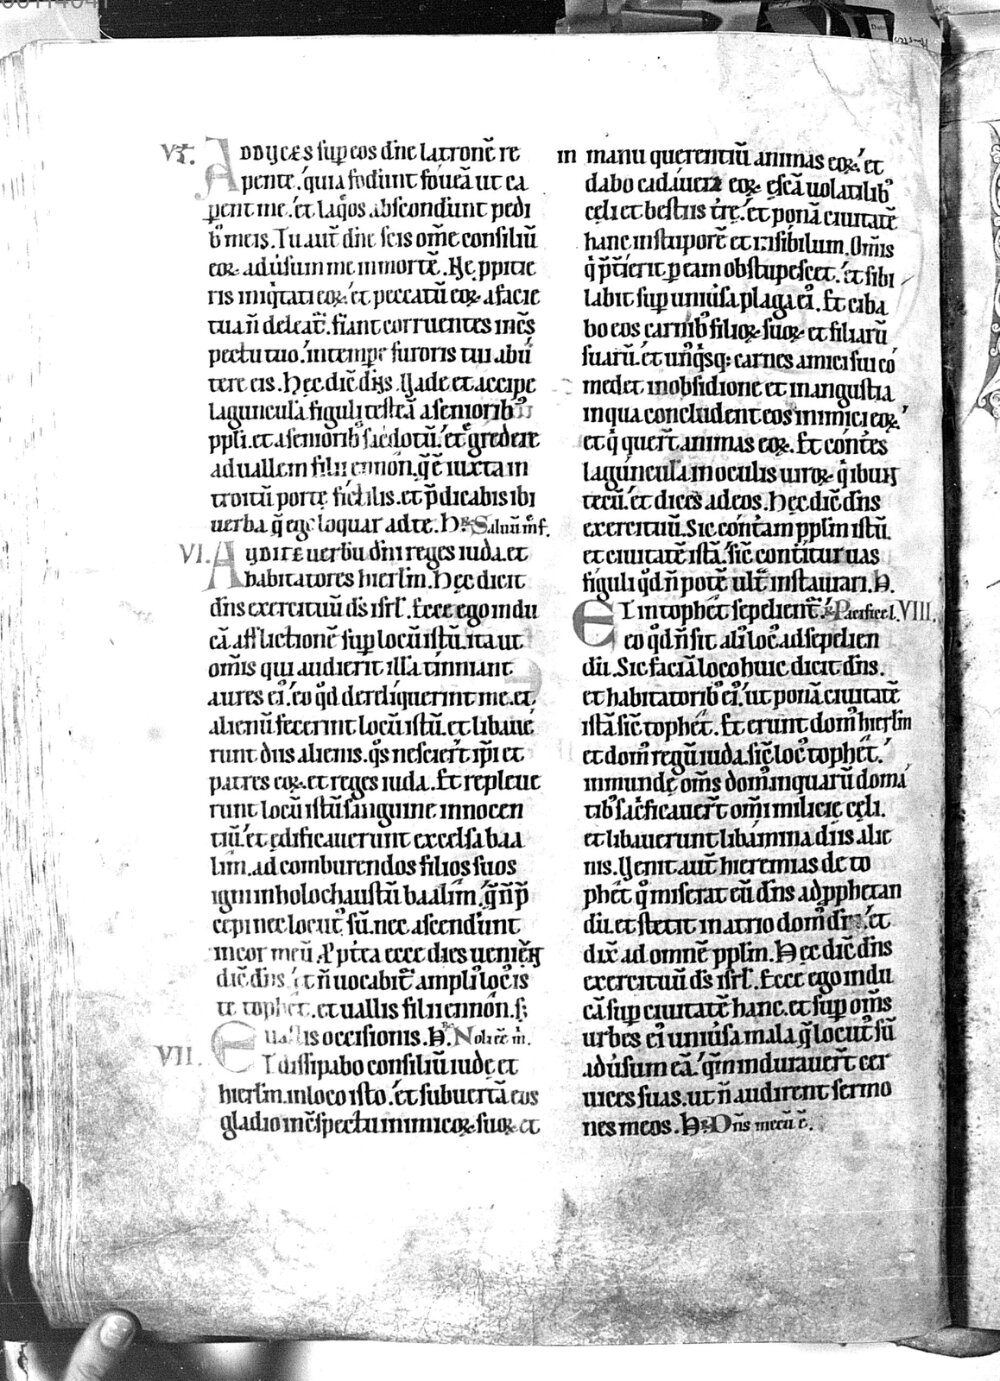 V.
ADDUCES sup eos dñe latronē re
pente. quia fodiunt foueā ut ca
perent me. et laq̄os absconderunt pedi
bꝰ meis. Tu aut̄ dñe scis om̄e consiliū
eoꝝ aduersum me in mortē. Ne ppicie
ris iniq̇tati eoꝝ. et peccatū eoꝝ a facie
tua ñ deleat̄. fiant corruentes in cs̄
pectu tuo. in tempe furoris tui abu
tere eis. Hec dic̄ dñs. Uade et accipe
laguncula figuli testeā a seniorib
ppli. et a seniorib sac̄dotū. et eg̓redere
ad uallem filii ennon. q̄ ē iuxta in
troitū porte fictilis. et p̄dicabis ibi
uerba q̄ ego loquar ad te. R̃. Saluū m̄ f.
VI.
AUDITE uerbū dñi reges iuda. et
habitatores hierlm̄. Hec dicit
dñs exercituū ds̄ isrl̄. Ecce ego indu
cā afflictionē sup locū istū. ita ut
om̄is qui audierit illā tinniant
aures ei. eo qd̄ dereliquerint me. et
alienū fecerint locū istū. et libaue
runt diis alienis. q̇s nescierūt ip̄i et
patres eoꝝ. et reges iuda. Et repleue
runt locū istū sanguine innocen
tiū. et edificauerunt excelsa baa
lim. ad comburendos filios suos
igni in holochaustū baalim. q̄ ñ p̄
cepi nec locutꝰ sū. nec ascendunt
in cor meū. Ppt̄ea ecce dies ueniēt
dic̄ dñs. et ñ uocabit̄ ampliꝰ locꝰ is
te tophet. et uallis filii ennon. s;
uallis occisionis. R̃. Nolite m̄.
VII.
Et dissipabo consiliū iude et
hierlm̄. in loco isto. et subuertā eos
gladio in cs̄pectu inimicoꝝ suoꝝ et
in manu querentiū animas eoꝝ. et
dabo cadauera eoꝝ escā uolatilibꝰ
celi et bestiis tr̄e. et ponā ciuitatē
hanc in stuporē et in sibilum. Om̄is
q̇ p̄t̄ierit p eam obstupescet. et sibi
labit sup uniūsa plaga eiꝰ. Et ciba
bo eos carnibꝰ filioꝝ suoꝝ et filiarū
suarū. et unꝰq̇sq; carnes amici sui co
medet in obsidione et in angustia
in qua concludent eos inimici eoꝝ
et q̇ querūt animas eoꝝ. Et cont̄es
lagunculā in oculis uiroꝝ q̇ ibunt
tecū. et dices ad eos. Hec dic̄ dñs
exercituū. Sic contam pplm̄ istū
et ciuitatē istā. sic̄ contitur uas
figuli qd̄ ñ potē ult̄ instaurari. R̃.
ET in tophet sepelient̄. R̃. Pacifice l. VIII.
eo qd̄ ñ sit aliꝰ locꝰ ad sepelien
dū. Sic faciā loco huic dicit dñs.
et habitatoribꝰ eiꝰ. ut ponā ciuitatē
istā sic̄ tophet. Et erunt domꝰ hierlm̄
et domꝰ regū iuda. sic̄ locꝰ tophet.
inmunde. om̄s domꝰ in quarū doma
tibꝰ sac̓ficauer̄t om̄i milicie celi.
et libauerunt libamina diis alie
nis. Uenit aut̄ hieremias de to
phet q̄ miserat eū dñs ad pphetan
dū. et stetit in atrio domꝰ dñi. et
dix̄ ad omnē pplm̄. Hec dic̄ dñs
exercituū ds̄ isrl̄. Ecce ego indu
cā sup ciuitatē hanc. et sup om̄s
urbes eiꝰ uniūsa mala q̄ locutꝰ sū
aduūsum eā. q̄m indurauer̄t cer
uices suas. ut ñ audirent sermo
nes meos. R̃. Dñs mecū ē.